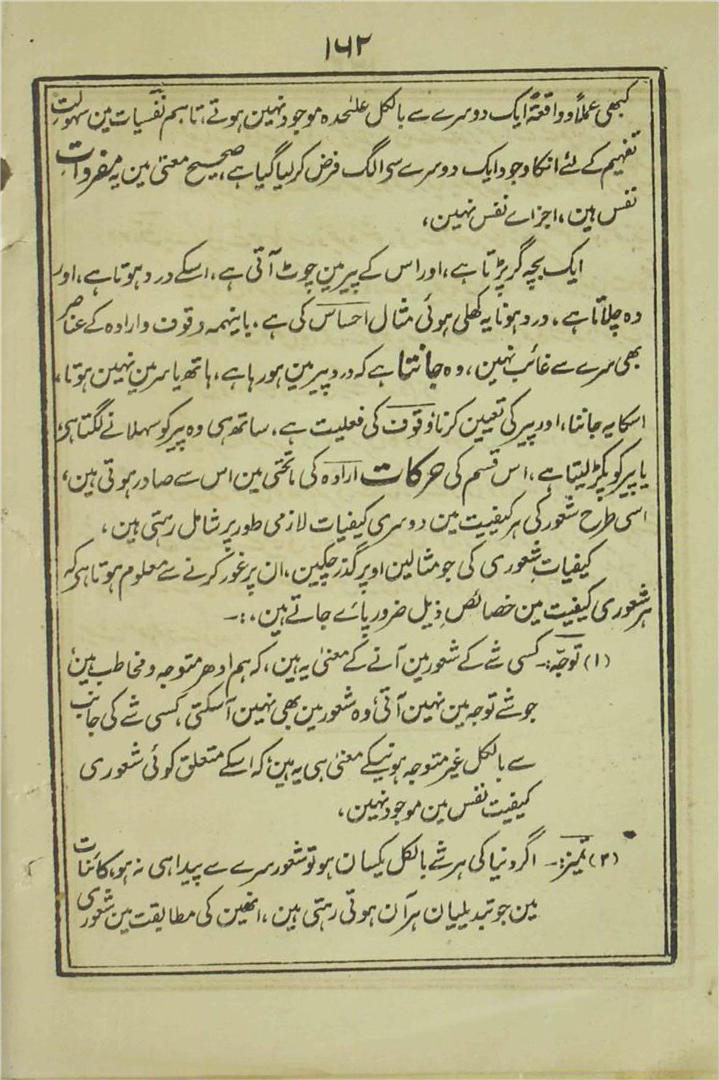 ۱۶۲
کبھی عملاً و واقعۃً ایک دوسرے سے بالکل علٰحدہ موجود نہین ہوتے، تاہم نفسیات مین سہولت
تفہیم کے لئے انکا وجود ایک دوسرے سے الگ فرض کر لیا گیا ہے، صحیح معنی مین یہ مفردات
نفس ہین، اجزاے نفس نہین،
ایک بچہ گر پڑتا ہے، اور اس کے پیر مین چوٹ آتی ہے، اسکے درد ہوتا ہے، اور
وہ چلاتا ہے، درد ہونا یہ کھلی ہوئی مثال احساس کی ہے۔ بااینہمہ وقوف و ارادہ کے عناصر
بھی سرے سے غائب نہین، وہ جانتا ہے کہ درد پیر مین ہو رہا ہے، ہاتھ یا سر مین نہین ہوتا،
اسکا یہ جاننا، اور پیر کی تعیین کرنا وقوف کی فعلیت ہے۔ ساتھ ہی وہ پیر کو سہلانے لگتا ہی،
یا پیر کو پکڑ لیتا ہے، اس قسم کی حرکات ارادہ کی ماتحتی مین اس سے صادر ہوتی ہین،
اسی طرح شعور کی ہر کیفیت مین دوسری کیفیات لازمی طور پر شامل رہتی ہین،
کیفیات شعوری کی جو مثالین اوپر گذر چکین، ان پر غور کرنے سے معلوم ہوتا ہی کہ
ہر شعوری کیفیت مین خصائص ذیل ضرور پائے جاتے ہین،:۔
(۱) توجّہ:۔ کسی شے کے شعور مین آنے کے معنیٰ یہ ہین، کہ ہم ادھر متوجہ و مخاطب ہین
جو شے توجہ مین نہین آتی، وہ شعور مین بھی نہین آسکتی، کسی شے کی جانب
سے بالکل غیر متوجہ ہونیکے معنی ہی یہ ہین، کہ اسکے متعلق کوئی شعوری
کیفیت نفس مین موجود نہین،
(۲) تمیز:۔ اگر دنیا کی ہر شے بالکل یکسان ہو تو شعور سرے سے پیدا ہی نہ ہو، کائنات
مین جو تبدیلیان ہر آن ہوتی رہتی ہین، انھین کی مطابقت مین شعوری